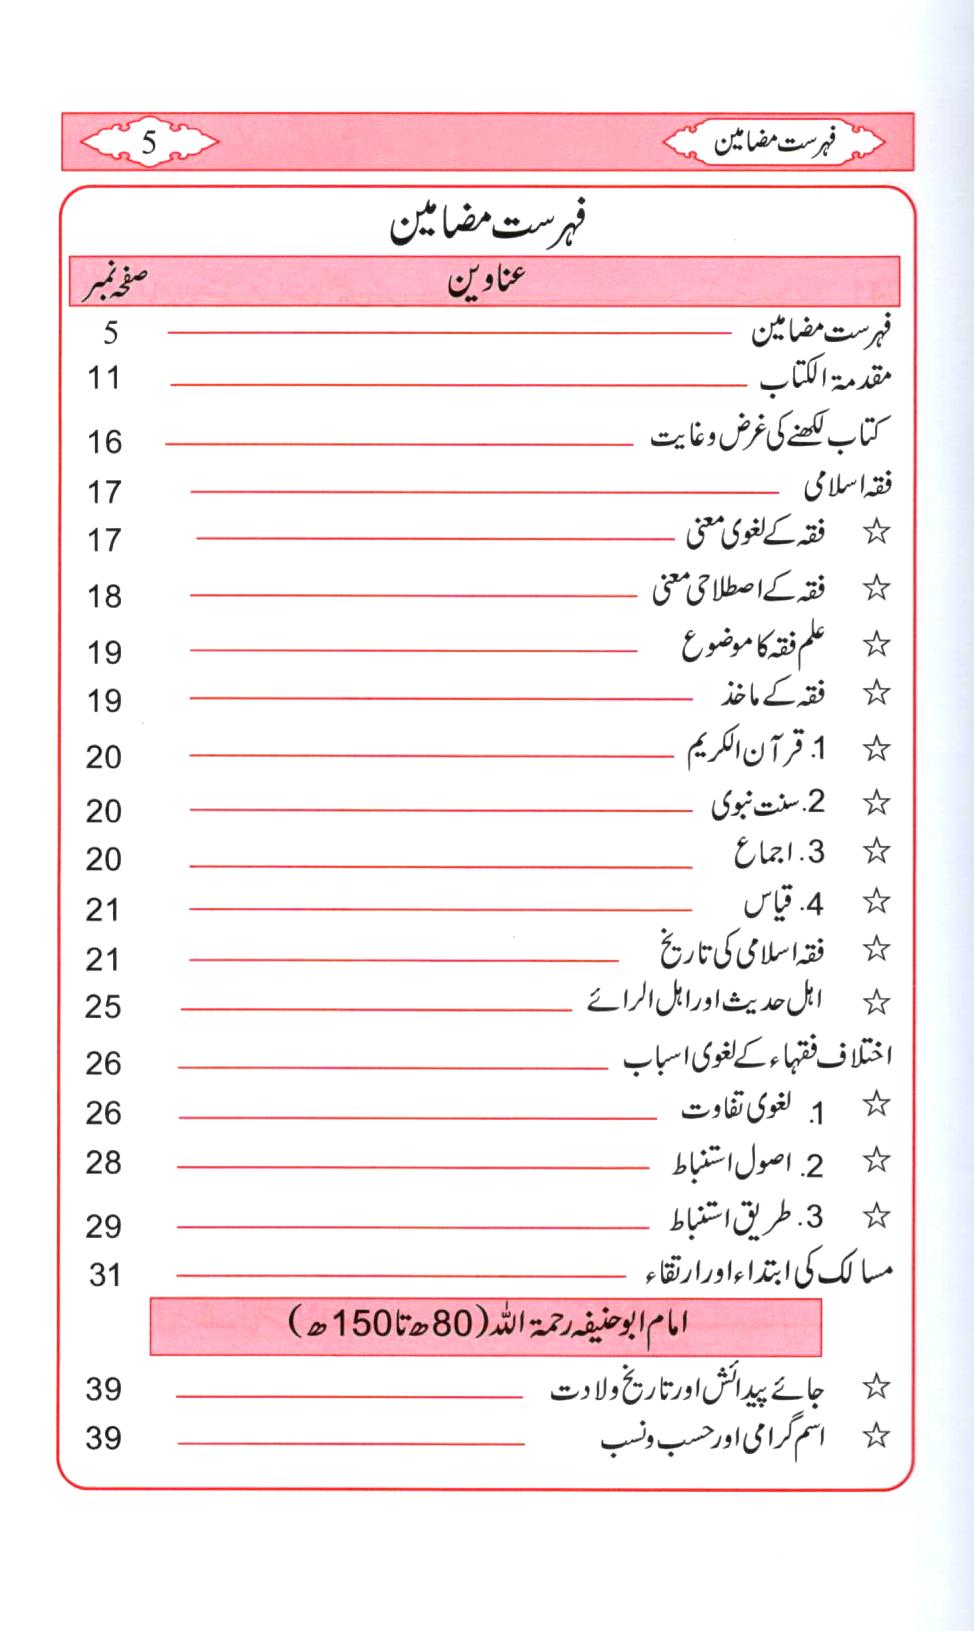 فہرست مضامین 5
فہرست مضامین
عناوین صفحہ نمبر
فہرست مضامین 5
مقدمۃ الکتاب 11
کتاب لکھنے کی غرض و غایت 16
فقہ اسلامی 17
☆ فقہ کے لغوی معنی 17
☆ فقہ کے اصطلاحی معنی 18
☆ علم فقہ کا موضوع 19
☆ فقہ کے ماخذ 19
☆ 1. قرآن الکریم 20
☆ 2. سنت نبوی 20
☆ 3. اجماع 20
☆ 4. قیاس 21
☆ فقہ اسلامی کی تاریخ 21
☆ اہل حدیث اور اہل الرائے 25
اختلاف فقہاء کے لغوی اسباب 26
☆ 1. لغوی تفاوت 26
☆ 2. اصول استنباط 28
☆ 3. طریق استنباط 29
مسالک کی ابتداء اور ارتقاء 31
امام ابو حنیفہ رحمۃ اللہ (80ھ تا 150ھ)
☆ جائے پیدائش اور تاریخ ولادت 39
☆ اسم گرامی اور حسب و نسب 39